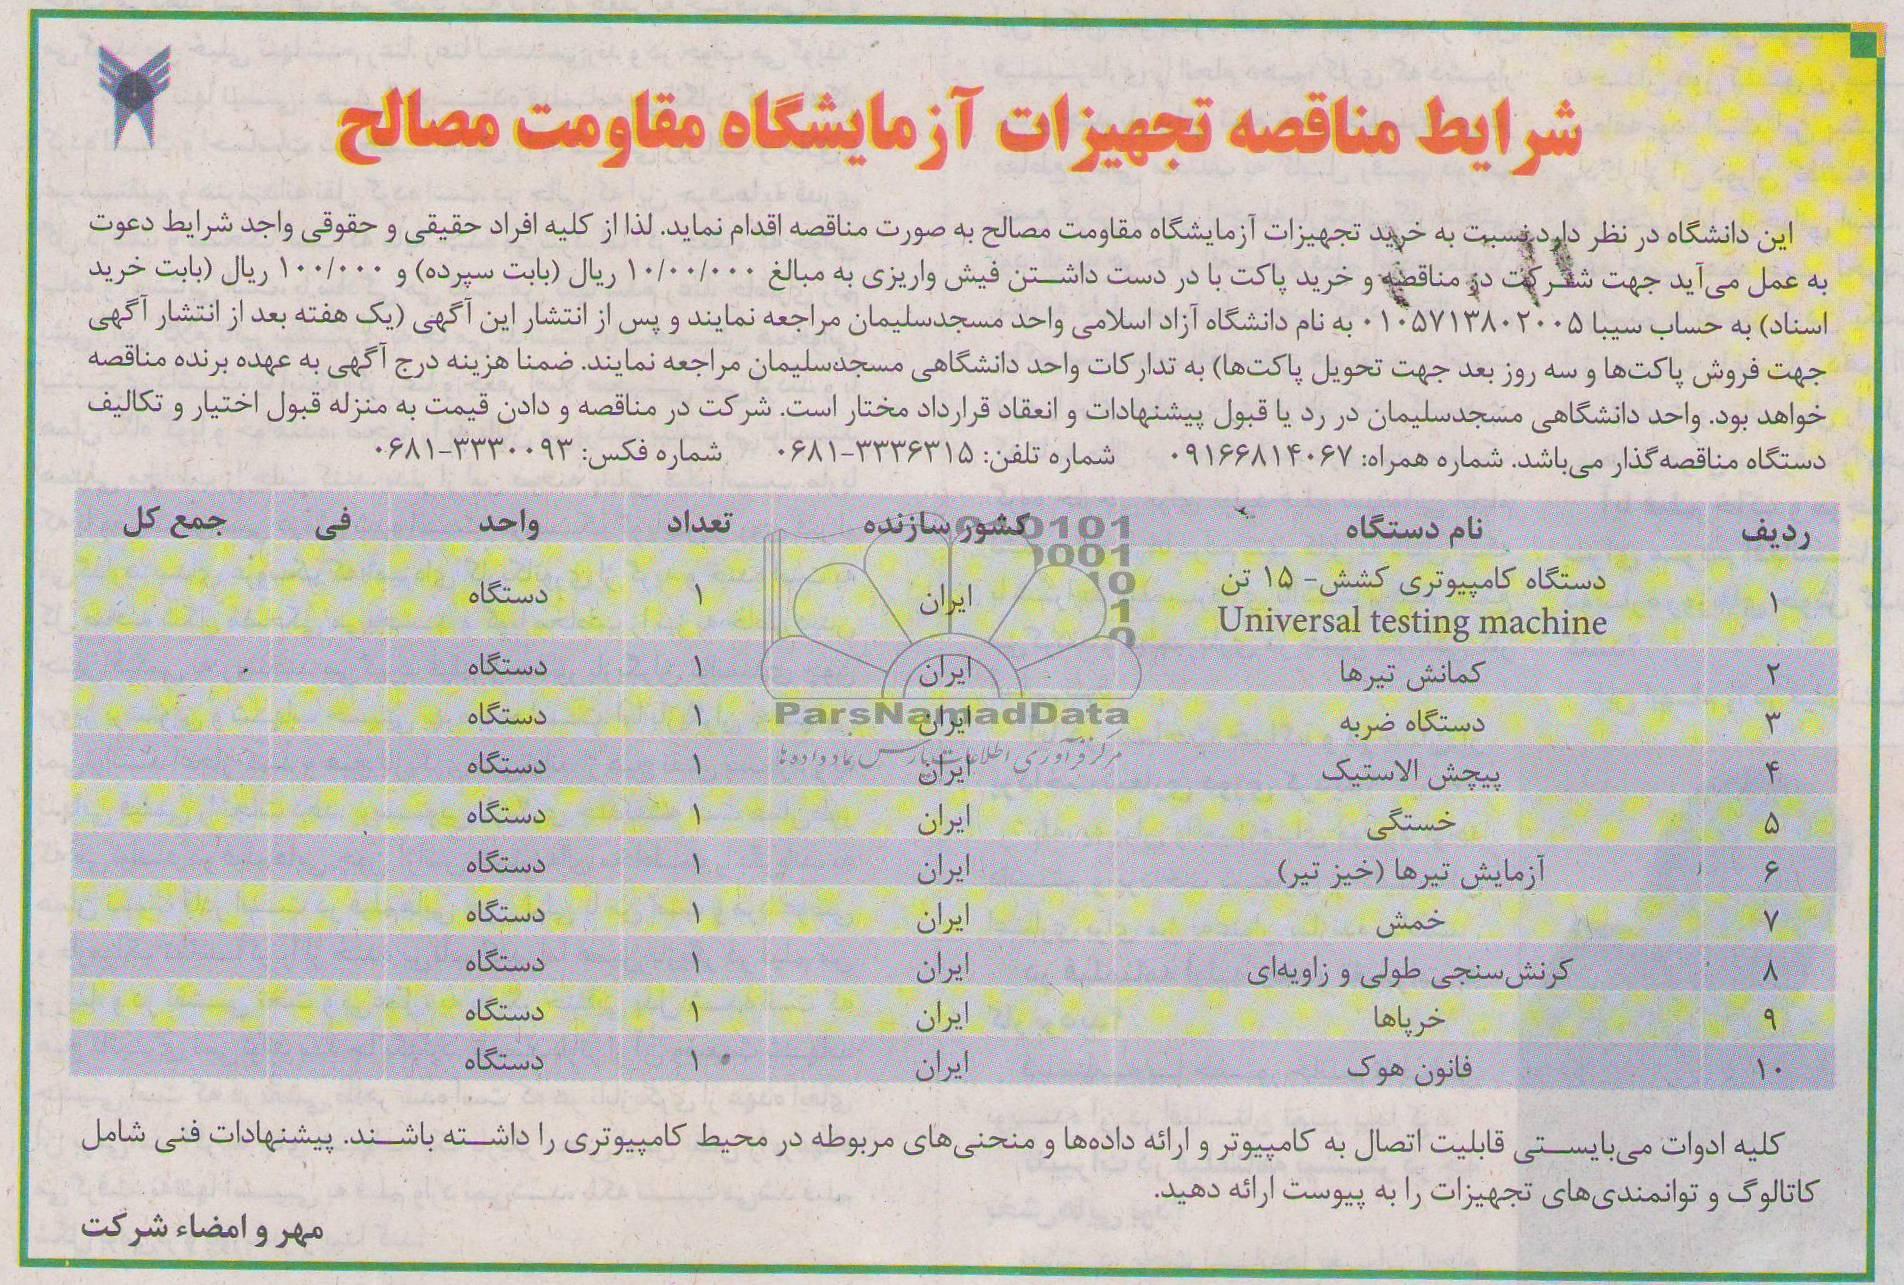 شرایط مناقصه تجهیزات آزمایشگاه مقاومت مصالح
این دانشگاه در نظر دارد نسبت به خرید تجهیزات آزمایشگاه مقاومت مصالح به صورت مناقصه اقدام نماید. لذا از کلیه افراد حقیقی و حقوقی واجد شرایط دعوت
به عمل می‌آید جهت شرکت در مناقصه و خرید پاکت با در دست داشتن فیش واریزی به مبالغ ۱۰/۰۰/۰۰۰ ریال (بابت سپرده) و ۱۰۰/۰۰۰ ریال (بابت خرید
اسناد) به حساب سیبا ۰۱۰۵۷۱۳۸۰۲۰۰۵ به نام دانشگاه آزاد اسلامی واحد مسجدسلیمان مراجعه نمایند و پس از انتشار این آگهی (یک هفته بعد از انتشار آگهی
جهت فروش پاکت‌ها و سه روز بعد جهت تحویل پاکت‌ها) به تدارکات واحد دانشگاهی مسجدسلیمان مراجعه نمایند. ضمنا هزینه درج آگهی به عهده برنده مناقصه
خواهد بود. واحد دانشگاهی مسجدسلیمان در رد یا قبول پیشنهادات و انعقاد قرارداد مختار است. شرکت در مناقصه و دادن قیمت به منزله قبول اختیار و تکالیف
دستگاه مناقصه‌گذار می‌باشد. شماره همراه: ۰۹۱۶۶۸۱۴۰۶۷ شماره تلفن: ۳۳۳۶۳۱۵-۰۶۸۱ شماره فکس: ۳۳۳۰۰۹۳-۰۶۸۱
ردیف نام دستگاه کشور سازنده تعداد واحد فی جمع کل
۱ دستگاه کامپیوتری کشش- ۱۵ تن ایران ۱ دستگاه
Universal testing machine
۲ کمانش تیرها ایران ۱ دستگاه
۳ دستگاه ضربه ایران ۱ دستگاه
۴ پیچش الاستیک ایران ۱ دستگاه
۵ خستگی ایران ۱ دستگاه
۶ آزمایش تیرها (خیز تیر) ایران ۱ دستگاه
۷ خمش ایران ۱ دستگاه
۸ کرنش‌سنجی طولی و زاویه‌ای ایران ۱ دستگاه
۹ خرپاها ایران ۱ دستگاه
۱۰ قانون هوک ایران ۱ دستگاه
ParsNamadData
مرکز فرآوری اطلاعات پارس نماد داده‌ها
کلیه ادوات می‌بایستی قابلیت اتصال به کامپیوتر و ارائه داده‌ها و منحنی‌های مربوطه در محیط کامپیوتری را داشته باشند. پیشنهادات فنی شامل
کاتالوگ و توانمندی‌های تجهیزات را به پیوست ارائه دهید.
مهر و امضاء شرکت